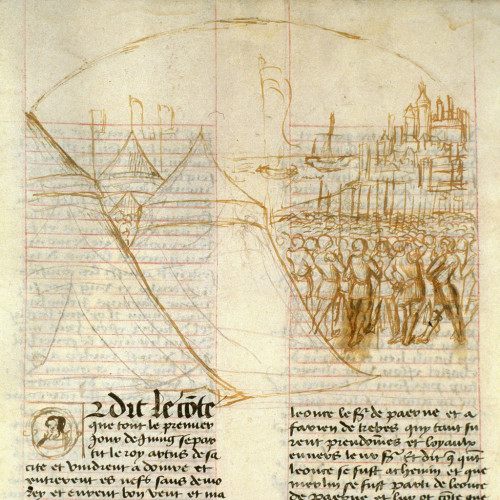 Or dit le cõte
que tout le premier
Jour de Juing se par
tit le roy artus de sa
cite et vindrent a douvre et
entrerent es nefs sans demo
rer et eurent bon vent et
leonce le sr de paerne et a
farien de trebes quy tant fu
rent preudomes et loyaulx
envers leur sr Et dit
leonce se fust achemin et que
merlin se fust parti de leonce
de paerne et